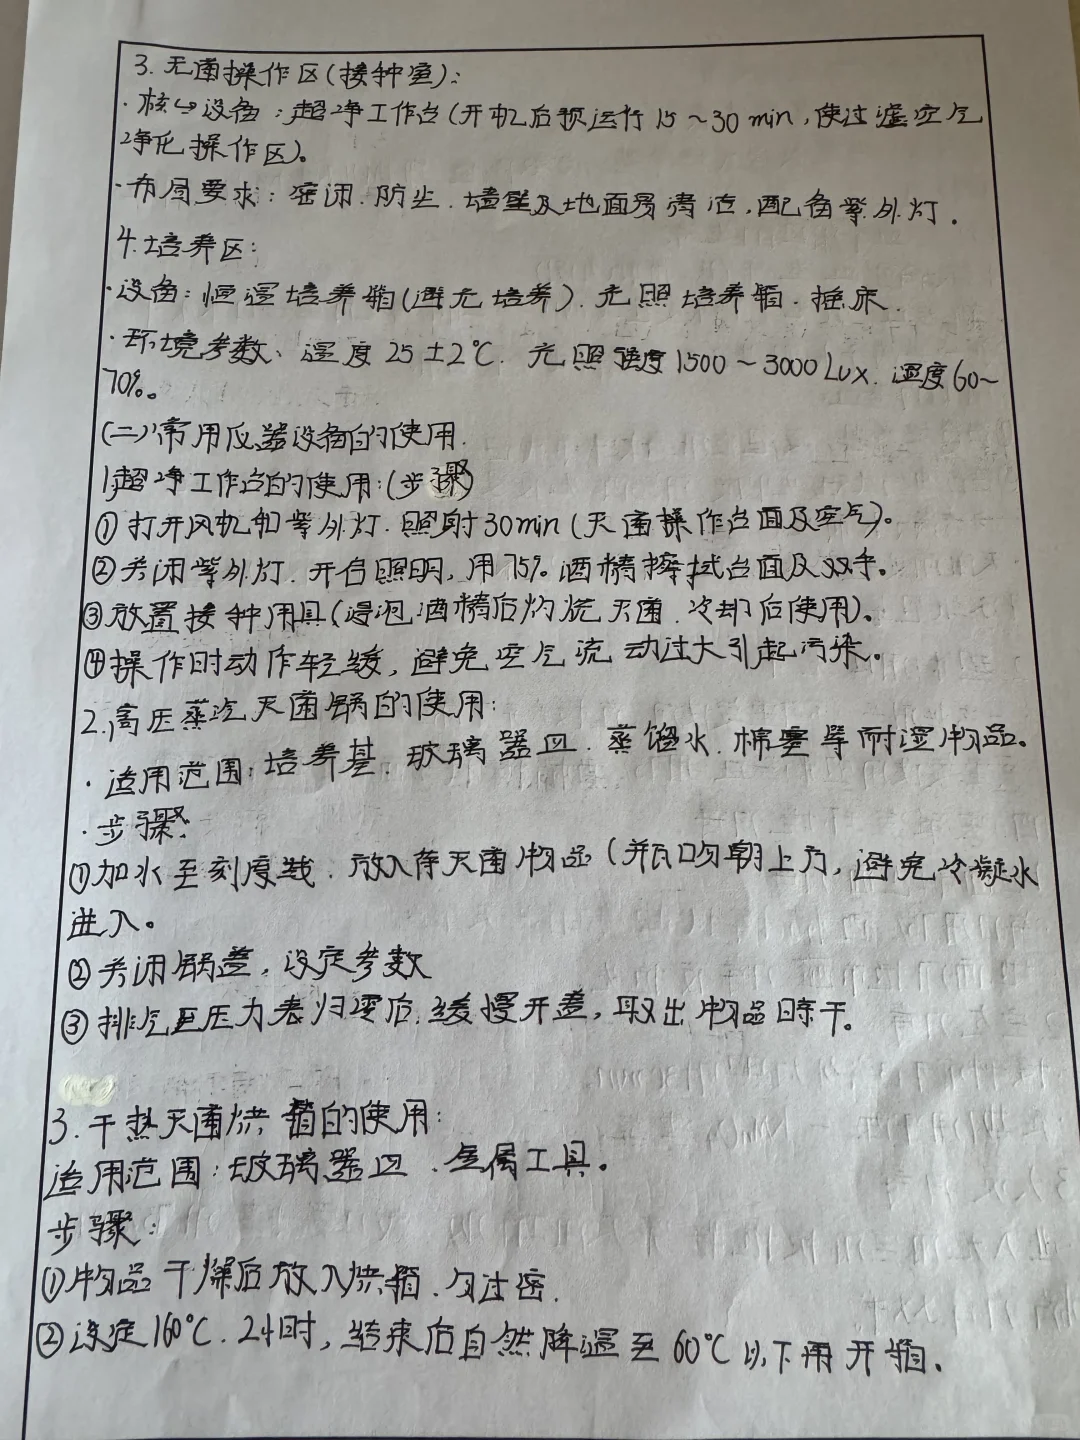 3.无菌操作区(接种室):
·核心设备:超净工作台(开机后预运行15~30min,使过滤空气
净化操作区)。
·布局要求:密闭、防尘、墙壁及地面易清洁,配备紫外灯.
4.培养区:
·设备:恒温培养箱(避光培养)、光照培养箱、摇床.
·环境参数、温度25±2℃、光照强度1500~3000Lux、湿度60~
70%。
(二)常用仪器设备的使用.
1,超净工作台的使用:(步骤)
①打开风机和紫外灯、照射30min(灭菌操作台面及空气)。
②关闭紫外灯、开启照明,用75%酒精擦拭台面及双手。
③放置接种用具(浸泡酒精后灼烧灭菌、冷却后使用)。
④操作时动作轻缓,避免空气流动过大引起污染。
2.高压蒸汽灭菌锅的使用:
·适用范围:培养基、玻璃器皿、蒸馏水、棉塞等耐湿物品。
·步骤:
①加水至刻度线、放入待灭菌物品(瓶口朝上方,避免冷凝水
进入。
②关闭锅盖,设定参数
③排气至压力表归零后,缓慢开盖,取出物品晾干。
3.干热灭菌烘箱的使用:
适用范围:玻璃器皿、金属工具。
步骤:
①物品干燥后放入烘箱、勿过密.
②设定160℃、2小时,结束后自然降温至60℃以下再开箱.